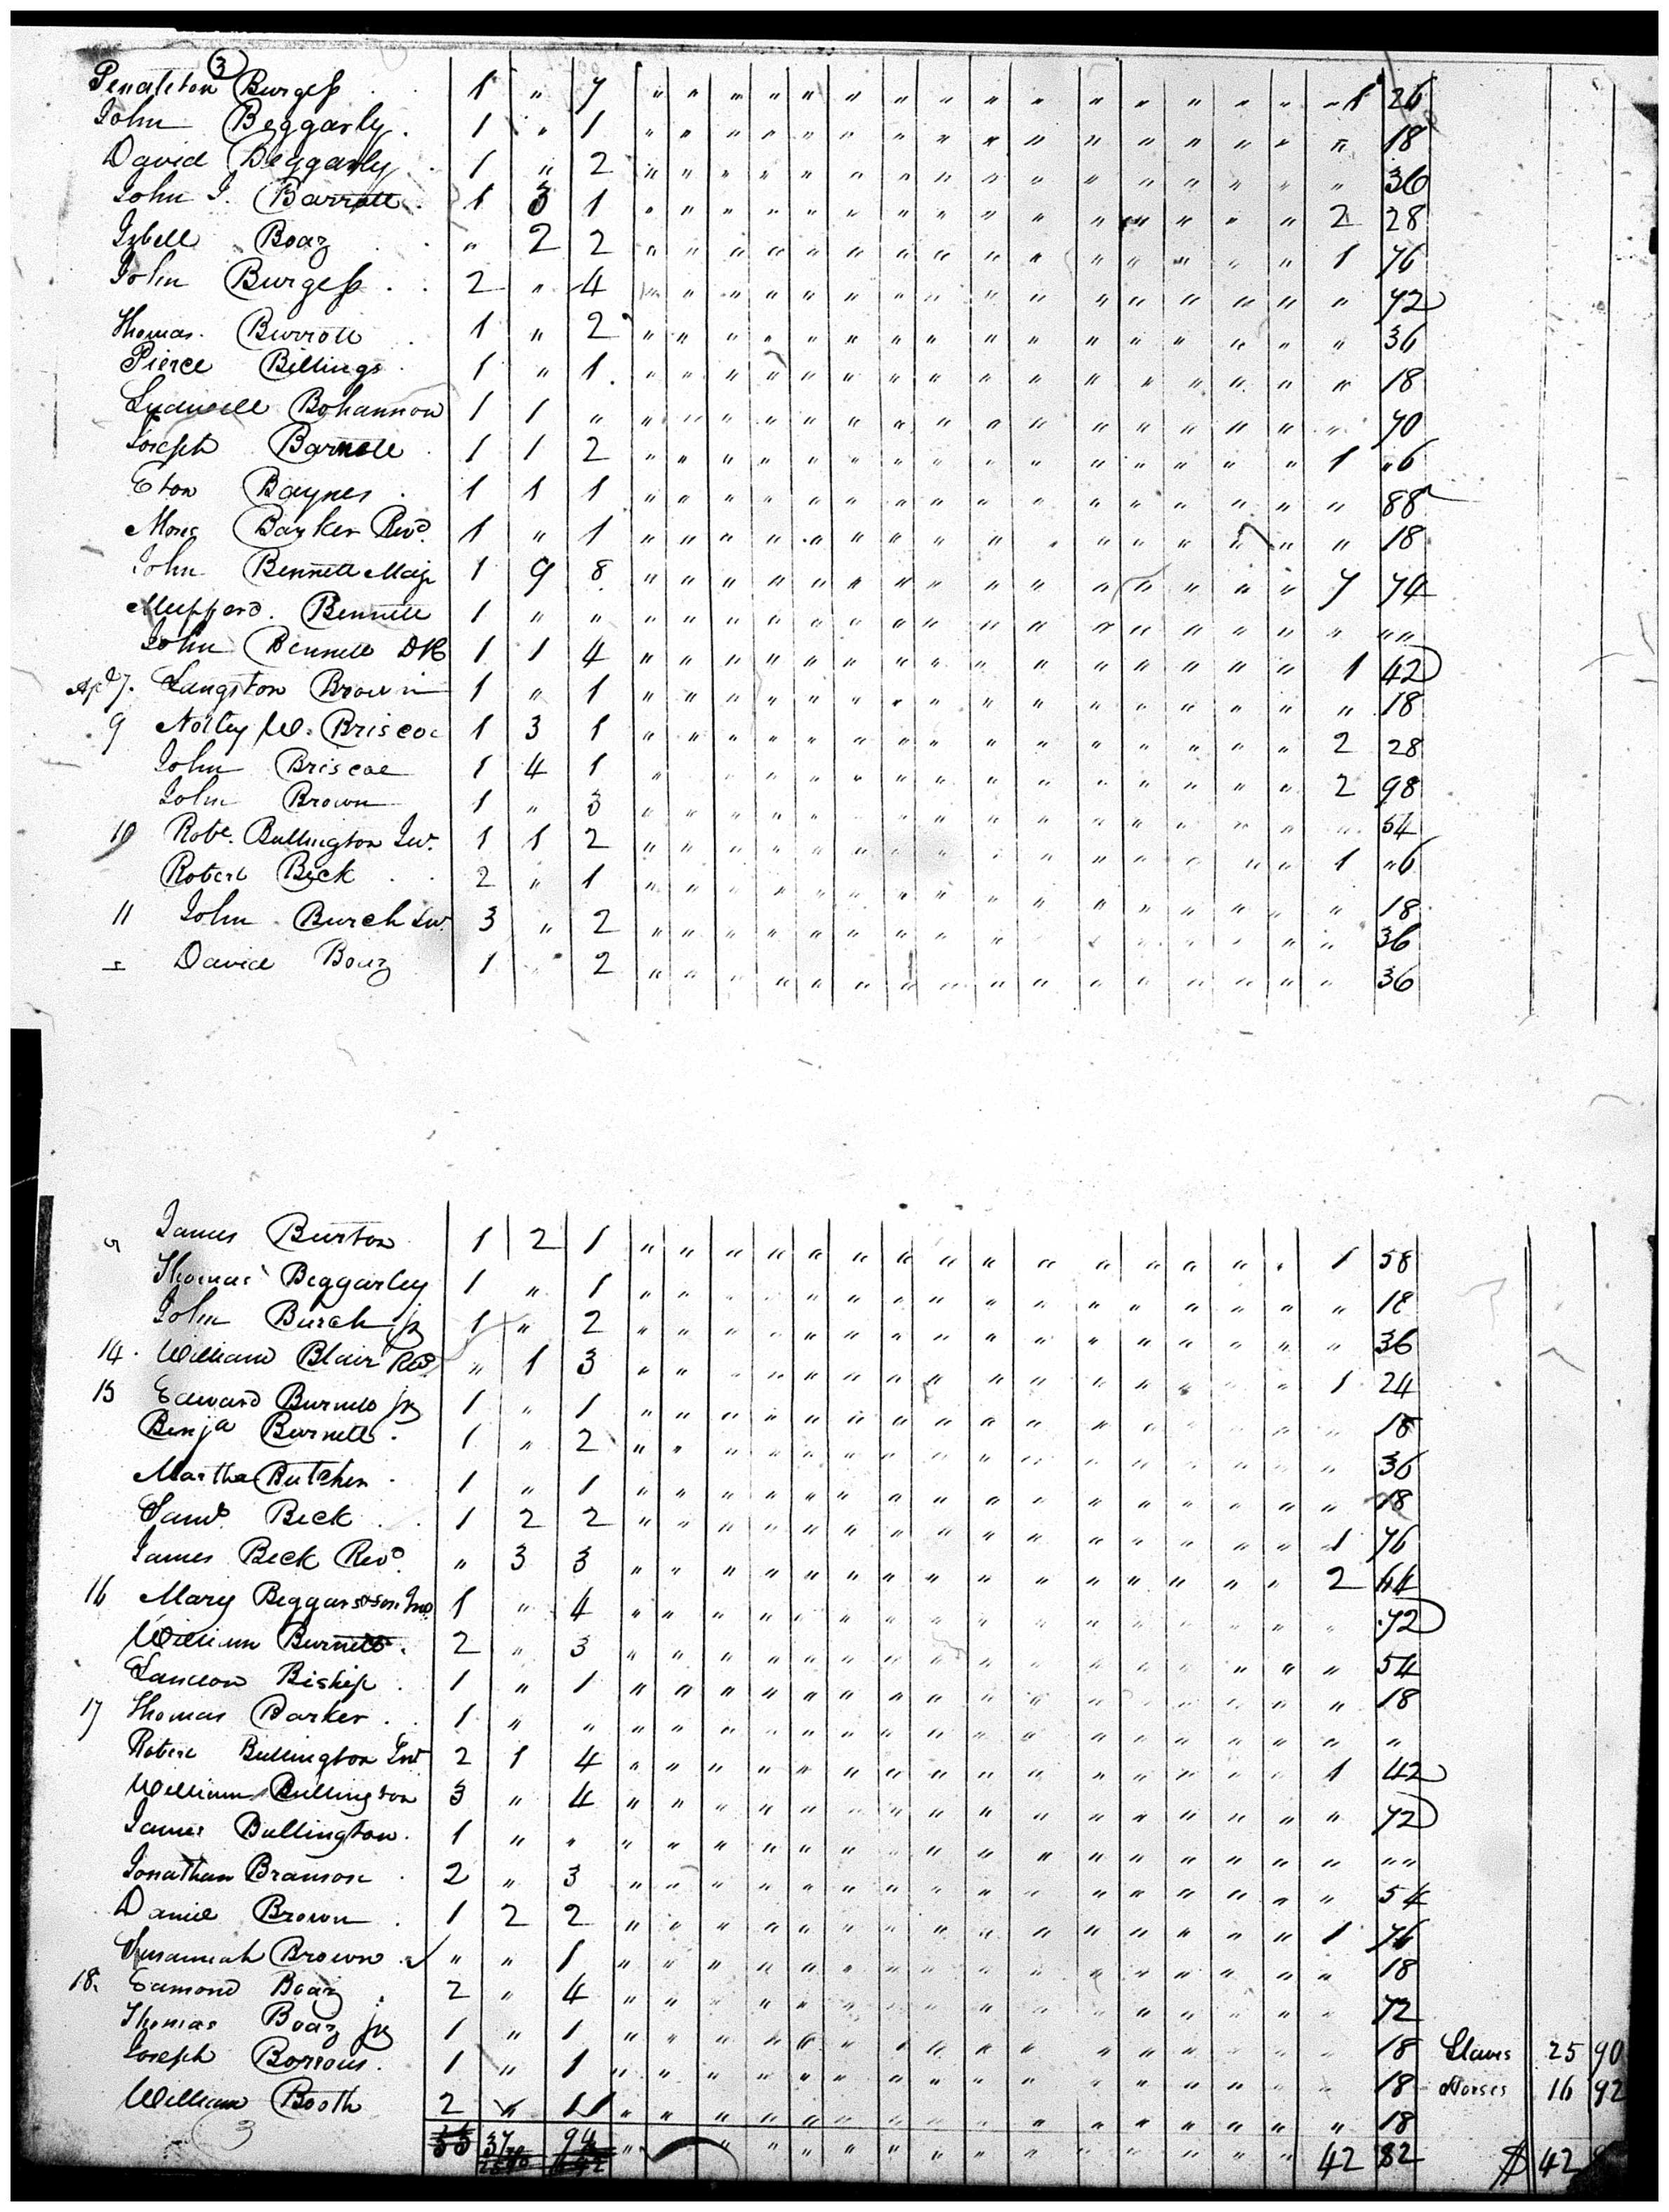 3
Pendleton Burgess 1 " 7 " " " " " " " " " " " " " " " 1 26
John Beggarly 1 " 1 " " " " " " " " " " " " " " " " 18
David Beggarly 1 " 2 " " " " " " " " " " " " " " " " 36
John J. Barrott 1 3 1 " " " " " " " " " " " " " " " 2 28
Izbell Boaz " 2 2 " " " " " " " " " " " " " " " 1 76
John Burgess 2 " 4 " " " " " " " " " " " " " " " " 72
Thomas Burrott 1 " 2 " " " " " " " " " " " " " " " " 36
Pierce Billings 1 " 1 " " " " " " " " " " " " " " " " 18
Ludwell Bohannon 1 1 " " " " " " " " " " " " " " " " " 70
Joseph Barnett 1 1 2 " " " " " " " " " " " " " " " 1 "6
Eton Baynes 1 1 1 " " " " " " " " " " " " " " " " 88
Moses Barker Revd. 1 " 1 " " " " " " " " " " " " " " " " 18
John Bennett Majr 1 9 8 " " " " " " " " " " " " " " " 7 74
Mumford Bennett 1 " " " " " " " " " " " " " " " " " " " "
John Bennett DR 1 1 4 " " " " " " " " " " " " " " " 1 42
Apl 7. Langston Brown 1 " 1 " " " " " " " " " " " " " " " " 18
9 Notley W. Briscoe 1 3 1 " " " " " " " " " " " " " " " 2 28
John Briscoe 1 4 1 " " " " " " " " " " " " " " 2 98
John Brown 1 " 3 " " " " " " " " " " " " " " " " 54
10 Robt. Bullington Jur. 1 1 2 " " " " " " " " " " " " " " " 1 "6
Robert Beck 2 " 1 " " " " " " " " " " " " " " " " 18
11 John Burch Sur. 3 " 2 " " " " " " " " " " " " " " " " 36
David Boaz 1 " 2 " " " " " " " " " " " " " " " " 36
James Burton 1 2 1 " " " " " " " " " " " " " " " 1 58
Thomas Beggarley 1 " 1 " " " " " " " " " " " " " " " " 18
John Burch jr 1 " 2 " " " " " " " " " " " " " " " " 36
14. William Blair Revd " 1 3 " " " " " " " " " " " " " " " 1 24
15 Edward Burnett jr 1 " 1 " " " " " " " " " " " " " " " " 18
Benja Burnett 1 " 2 " " " " " " " " " " " " " " " " 36
Martha Butcher 1 " 1 " " " " " " " " " " " " " " " " 18
Saml. Beck 1 2 2 " " " " " " " " " " " " " " " 1 76
James Beck Revd. " 3 3 " " " " " " " " " " " " " " " 2 64
16 Mary 1 " 4 " " " " " " " " " " " " " " " " 72
William Burnett 2 " 3 " " " " " " " " " " " " " " " " 54
Landon Biship 1 " 1 " " " " " " " " " " " " " " " " 18
17 Thomas Barker 1 " " " " " " " " " " " " " " " " " " "
Robert Bullington 2 1 4 " " " " " " " " " " " " " " " 1 42
William Bullington 3 " 4 " " " " " " " " " " " " " " " " 72
James Bullington 1 " " " " " " " " " " " " " " " " " " " "
Jonathan Branson 2 " 3 " " " " " " " " " " " " " " " " 54
Daniel Brown 1 2 2 " " " " " " " " " " " " " " " 1 76
Susannah Brown " " 1 " " " " " " " " " " " " " " " " 18
18. Edmond Boaz 2 " 4 " " " " " " " " " " " " " " " " 72
Thomas Boaz jr 1 " 1 " " " " " " " " " " " " " " " " 18 Slaves 25 90
Joseph Borrous 1 " 1 " " " " " " " " " " " " " " " " 18 Horses 16 92
William Booth 2 " 1 " " " " " " " " " " " " " " " " 18
3 55 37 94 " " " " " " " " " " " " " " 42 82 $ 42